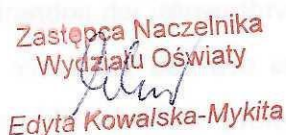 Zastępca Naczelnika
Wydziału Oświaty
Edyta Kowalska-Mykita